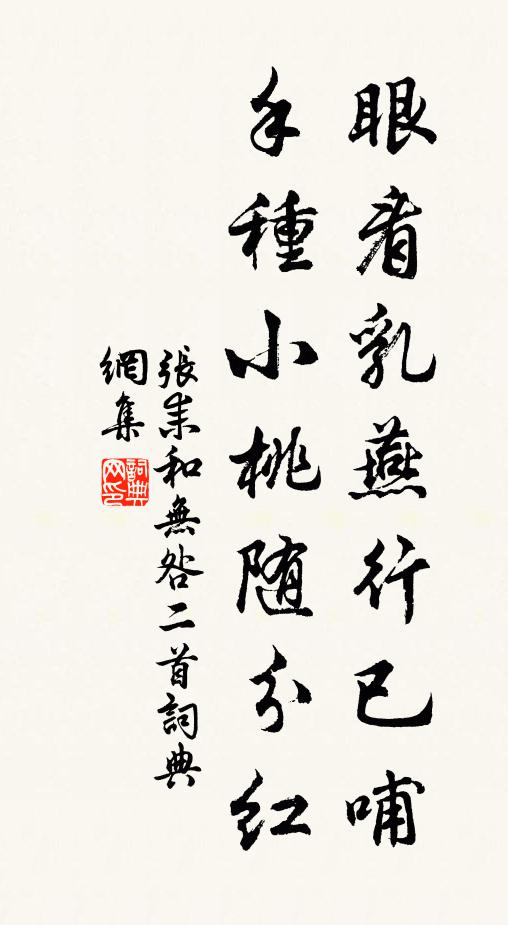 眼看乳燕行已哺
手種小桃随分紅
張耒和無咎二首詞典
網集
詞典
网印